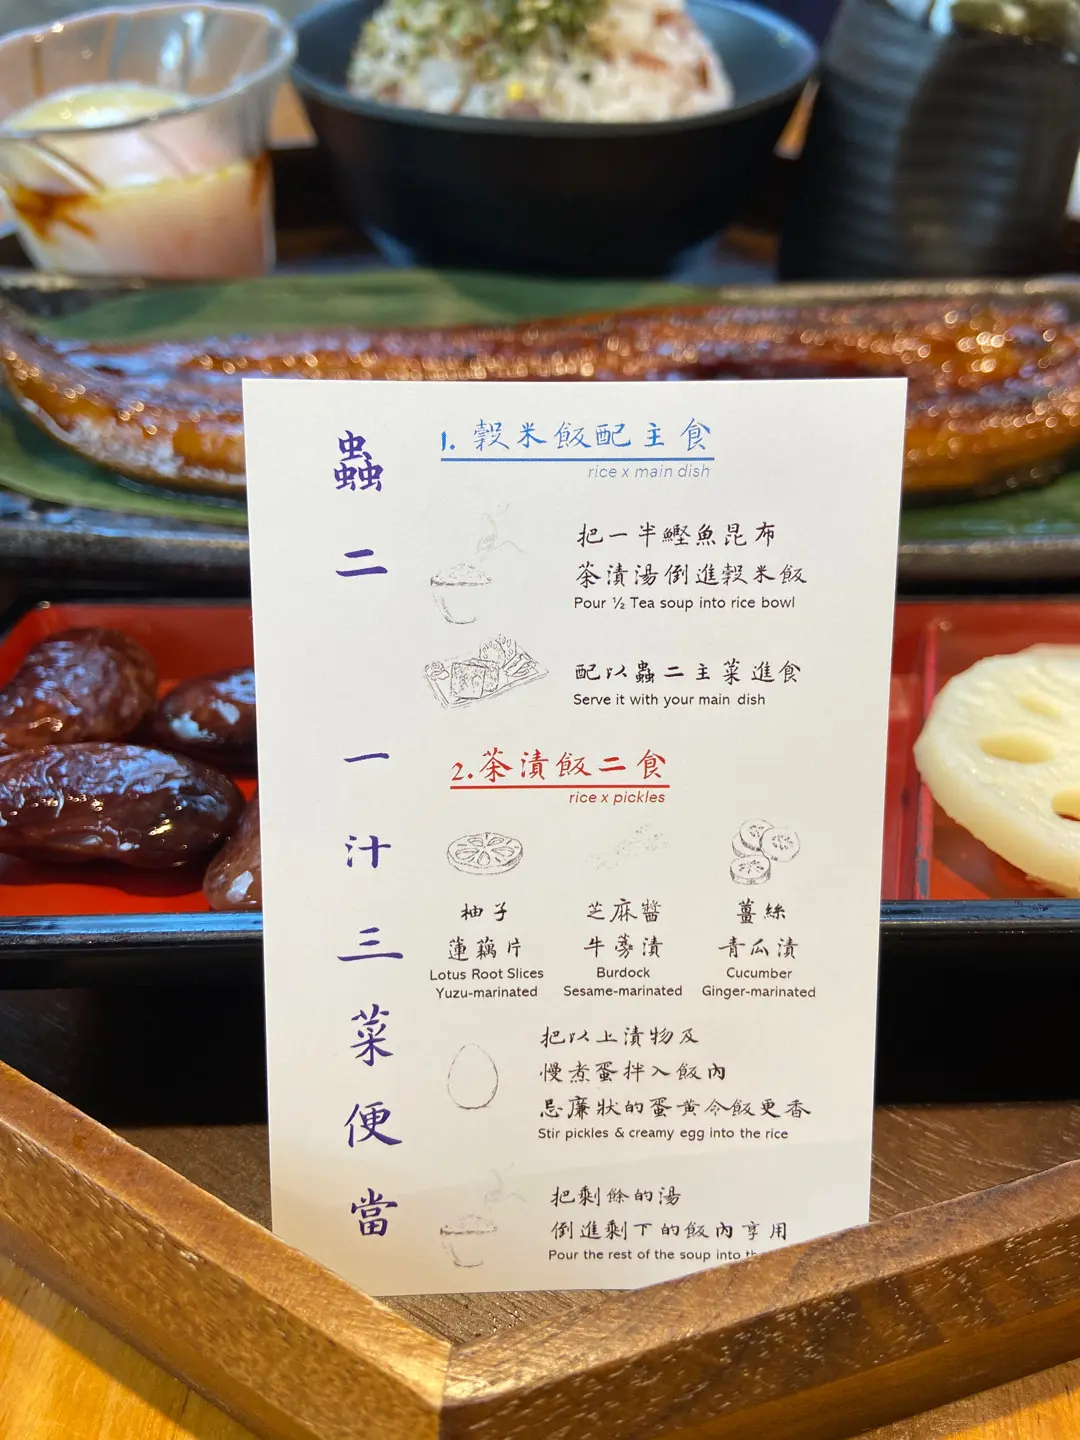 蟲二 一汁三菜便當
1. 穀米飯配主食
rice x main dish
把一半鰹魚昆布
茶漬湯倒進穀米飯
Pour ½ Tea soup into rice bowl
配以蟲二主菜進食
Serve it with your main dish
2. 茶漬飯二食
rice x pickles
柚子
蓮藕片
Lotus Root Slices
Yuzu-marinated
芝麻醬
牛蒡漬
Burdock
Sesame-marinated
薑絲
青瓜漬
Cucumber
Ginger-marinated
把以上漬物及
慢煮蛋拌入飯內
忌廉狀的蛋黃令飯更香
Stir pickles & creamy egg into the rice
把剩餘的湯
倒進剩下的飯內享用
Pour the rest of the soup into